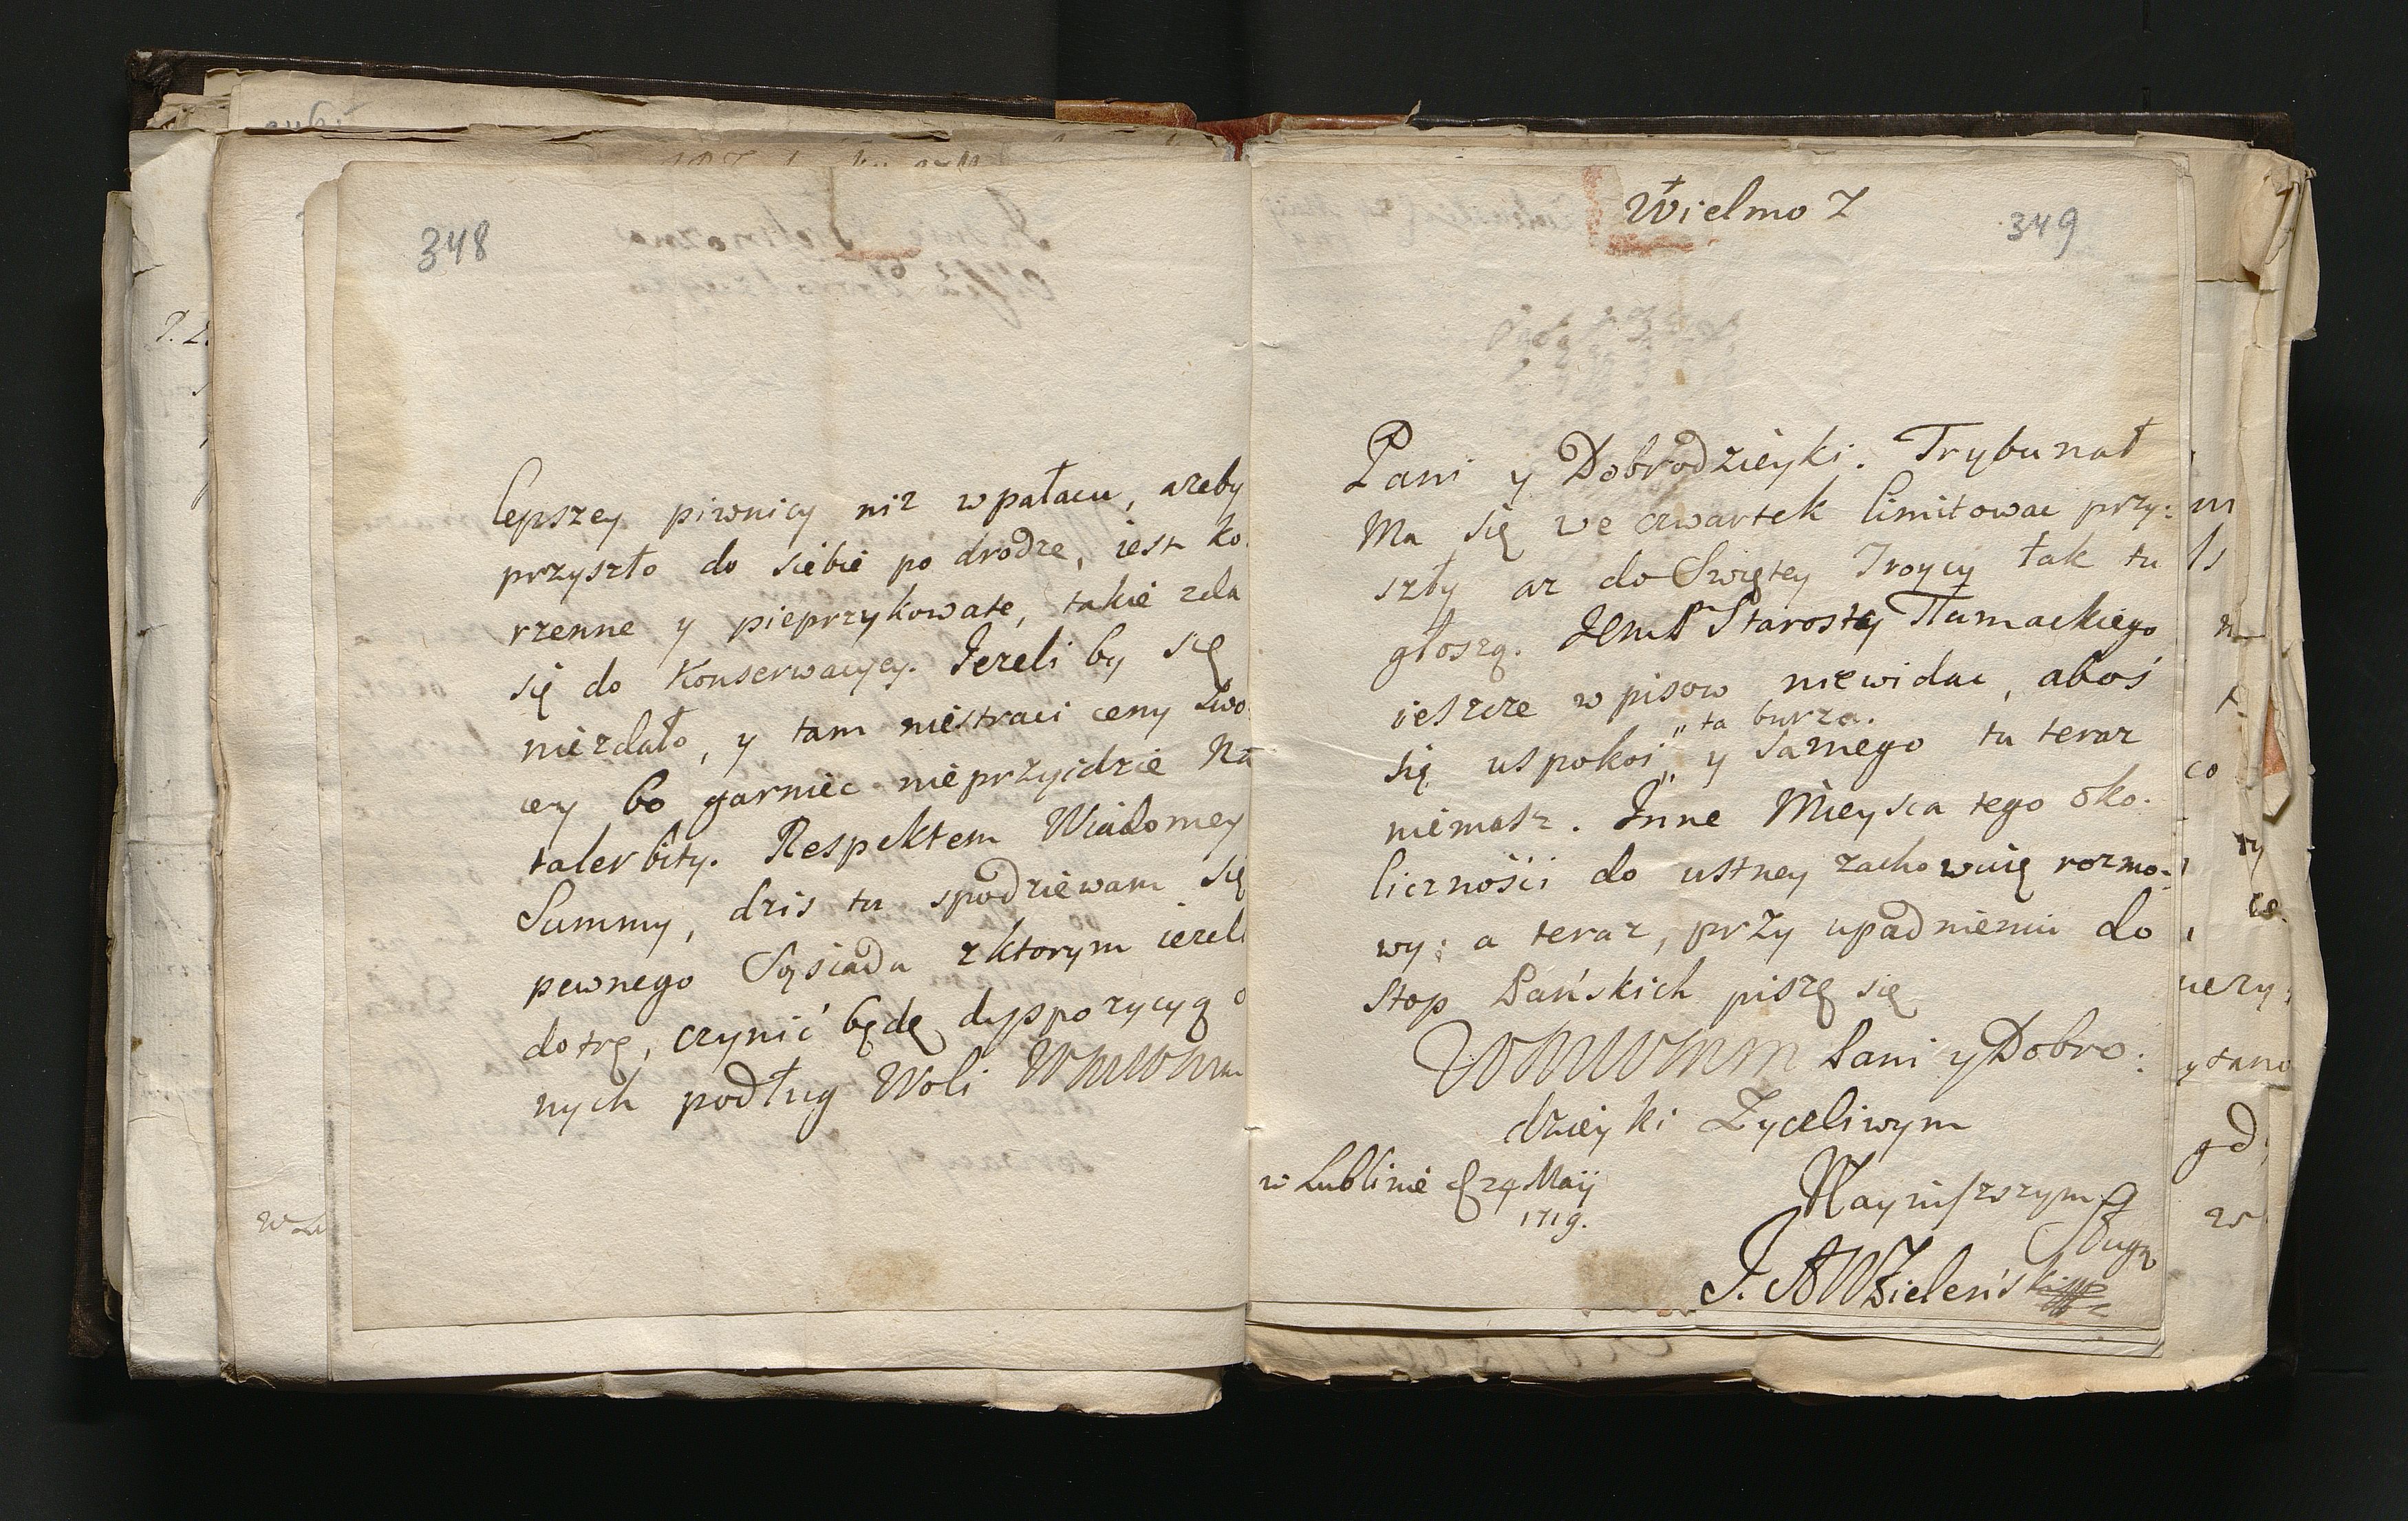 348
lepszey piwnicy niz wpałacu, azeby
przyszło do siebie po drodze, iest ko
rzenne y pieprzykowate, takie zda
się do Konserwacyey. Iezeli by się
niezdało, y tam niestraci ceny swo
iey bo garniec nieprzyidzie Na
talerbity. Respektem Wiadomey
Summy, dzis tu spodziewam się
pewnego Sąsiada zktorym iezeli
dotrę, czynić będę dyspozycyą o
nych podług Woli WMWMM
Wielmoz
349
Pani y Dobrodzieyki. Trybunał
Ma się we czwartek limitowac przy:
szły az do Swiętey Troycy tak tu
głoszą. Jemści Starosty Tłumackiego
ieszcze wpisow niewidac, aboś
się uspokoi „ ta burza.
„ y samego tu teraz
niemasz. Inne Mieysca tego oko.
liczności do ustney zachowuię rozmo:
wy; a teraz, przy upadnieniu do
stop Pańskich piszę się
WMWMM Pani y Dobro:
dzieyki Zyczliwym
w Lublinie d 24 Maÿ
1719.
Nayniszszym
Sługą
J. A W Zieleński